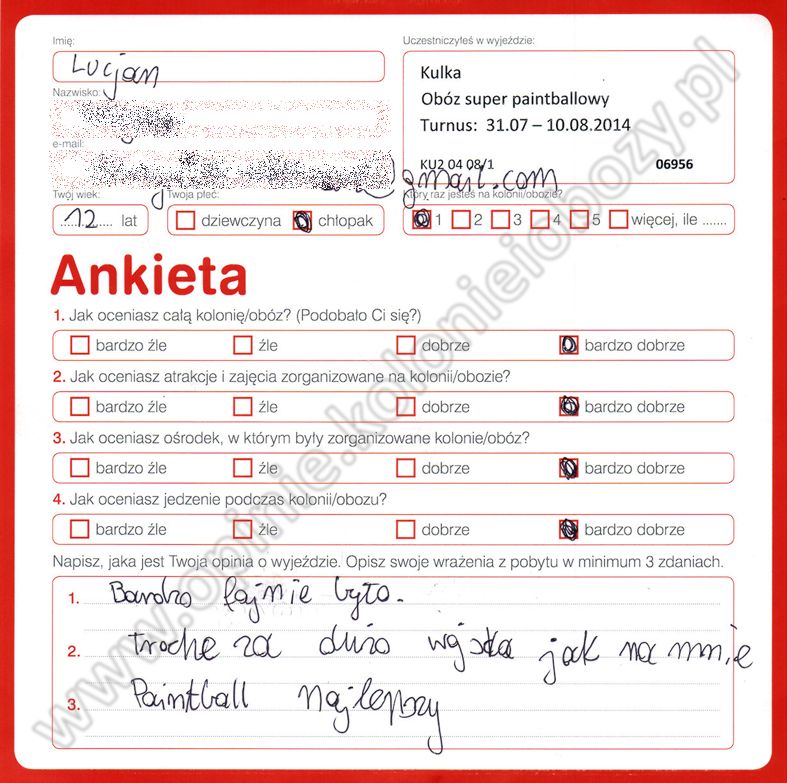 Imię:
Lucjan
Uczestniczyłeś w wyjeździe:
Kulka
Obóz super paintballowy
Turnus: 31.07 – 10.08.2014
KU2 04 08/1 06956
Nazwisko:
e-mail:
@gmail.com
Twój wiek:
12 lat
Twoja płeć:
dziewczyna chłopak
Który raz jesteś na kolonii/obozie?
1 2 3 4 5 więcej, ile .......
Ankieta
1. Jak oceniasz całą kolonię/obóz? (Podobało Ci się?)
bardzo źle źle dobrze bardzo dobrze
2. Jak oceniasz atrakcje i zajęcia zorganizowane na kolonii/obozie?
bardzo źle źle dobrze bardzo dobrze
3. Jak oceniasz ośrodek, w którym były zorganizowane kolonie/obóz?
bardzo źle źle dobrze bardzo dobrze
4. Jak oceniasz jedzenie podczas kolonii/obozu?
bardzo źle źle dobrze bardzo dobrze
Napisz, jaka jest Twoja opinia o wyjeździe. Opisz swoje wrażenia z pobytu w minimum 3 zdaniach.
1. Bardzo fajnie było.
2. Troche za dużo wojska jak na mnie
3. Paintball najlepszy
www.opinie.kolonieiobozy.pl